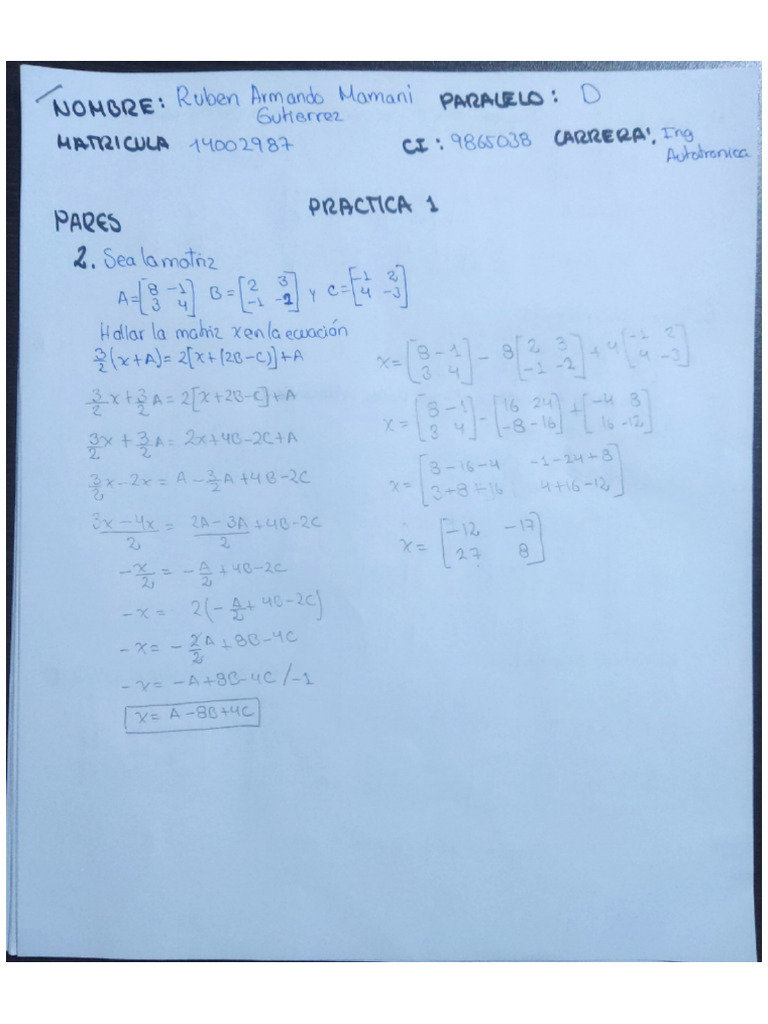 NOMBRE: Ruben Armando Mamani Gutierrez PARALELO: D
MATRICULA 14002987 CI: 9865038 CARRERA: Ing Autotronica
PRACTICA 1
PARES
2. Sea la matriz
A=[8 -1; 3 4] B=[2 3; -1 -2] y C=[-1 2; 4 -3]
Hallar la matriz x en la ecuación
3/2(x+A)=2[x+(2B-C)]+A
3/2x+3/2A=2[x+2B-C]+A
3/2x+3/2A=2x+4B-2C+A
3/2x-2x=A-3/2A+4B-2C
3x-4x/2=2A-3A/2+4B-2C
-x/2=-A/2+4B-2C
-x=2(-A/2+4B-2C)
-x=-2/2A+8B-4C
-x=-A+8B-4C/-1
x=A-8B+4C
x=[8 -1; 3 4]-8[2 3; -1 -2]+4[-1 2; 4 -3]
x=[8 -1; 3 4]-[16 24; -8 -16]+[-4 8; 16 -12]
x=[8-16-4 -1-24+8; 3+8+16 4+16-12]
x=[-12 -17; 27 8]